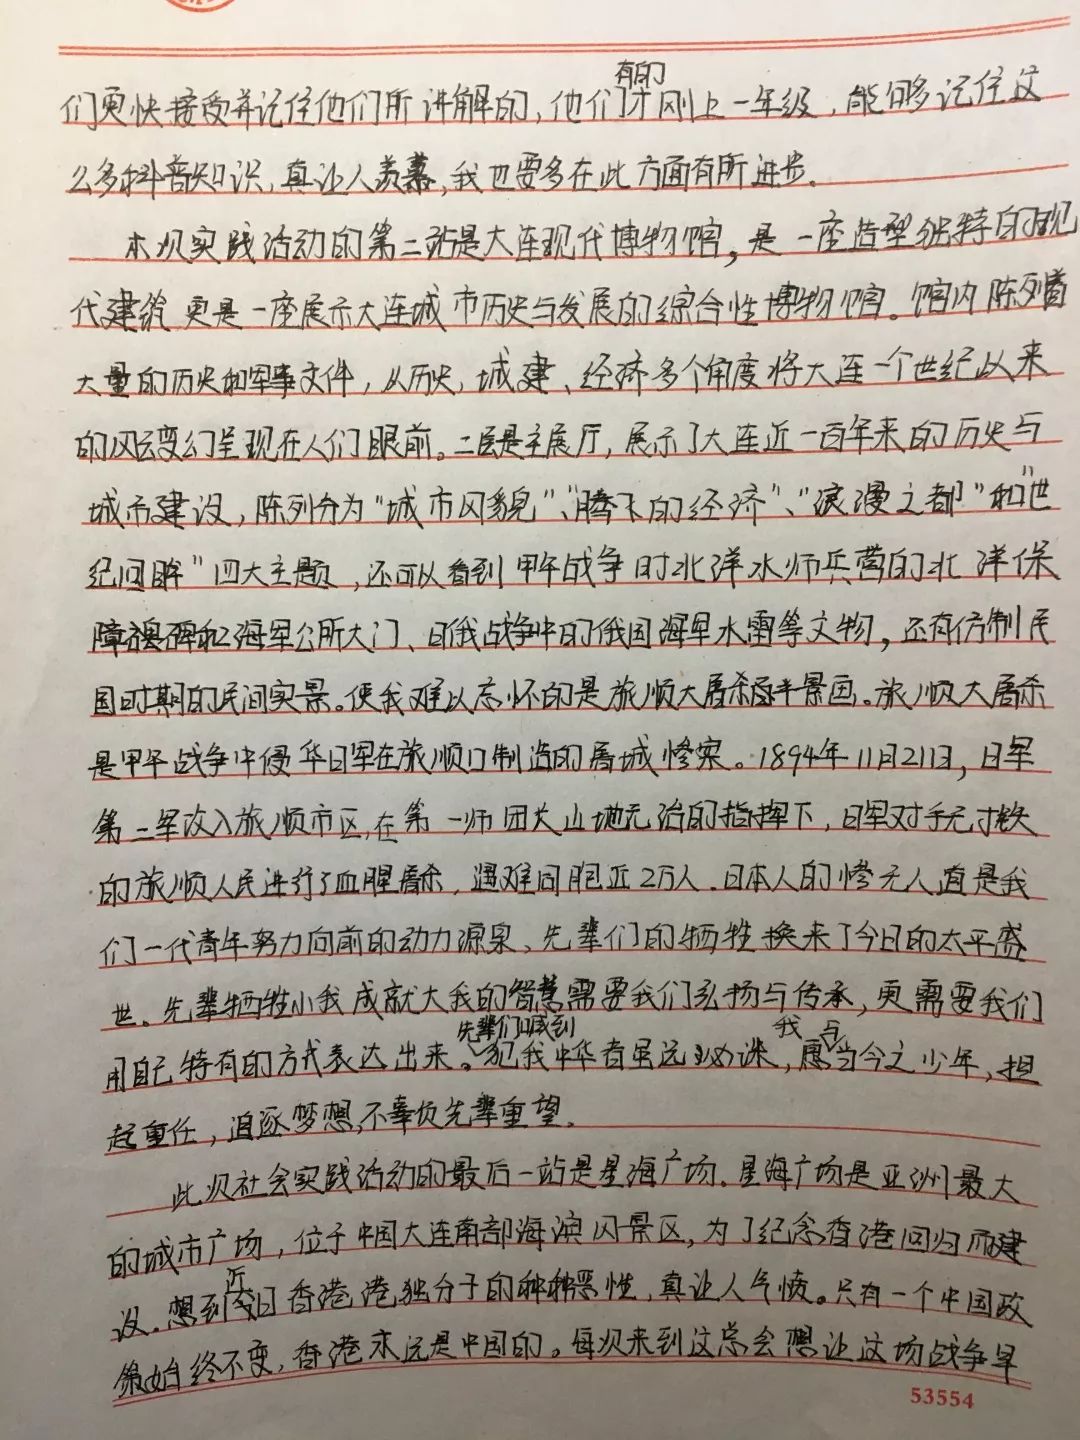 们更快接受并记住他们所讲解的,他们有的才刚上一年级,能够多记住这
么多科普知识,真让人羡慕,我也要多在此方面有所进步.
本次实践活动的第二站是大连现代博物馆,是一座造型独特的现
代建筑 更是一座展示大连城市历史与发展的综合性博物馆。馆内陈列着
大量的历史和军事文件,从历史,城建、经济多个角度将大连一个世纪以来
的风云变幻呈现在人们眼前。二层是主展厅,展示了大连近一百年来的历史与
城市建设,陈列分为“城市风貌”、“腾飞的经济”、“浪漫之都”和“世
纪回眸”四大主题,还可以看到甲午战争时北洋水师兵营的北洋保
障碑和海军公所大门、日俄战争中的俄国海军水雷等文物,还有仿制民
国时期的民间实景。使我难以忘怀的是旅顺大屠杀半景画。旅顺大屠杀
是甲午战争中侵华日军在旅顺口制造的屠城惨案。1894年11月21日,日军
第二军攻入旅顺市区,在第一师团长山地元治的指挥下,日军对手无寸铁
的旅顺人民进行了血腥屠杀,遇难同胞近2万人.日本人的惨无人道是我
们一代青年努力向前的动力源泉、先辈们的牺牲换来了今日的太平盛
世.先辈牺牲小我成就大我的智慧需要我们弘扬与传承,更需要我们
用自己特有的方式表达出来。先辈们喊到犯我中华者虽远必诛,我愿与当今之少年,担
起重任,追逐梦想,不辜负先辈重望.
此次社会实践活动的最后一站是星海广场.星海广场是亚洲最大
的城市广场,位于中国大连南部海滨风景区,为了纪念香港回归而建
设.想到近日香港港独分子的种种恶性,真让人气愤。只有一个中国政
策始终不变,香港永远是中国的。每次来到这总会想让这场战争早
53554